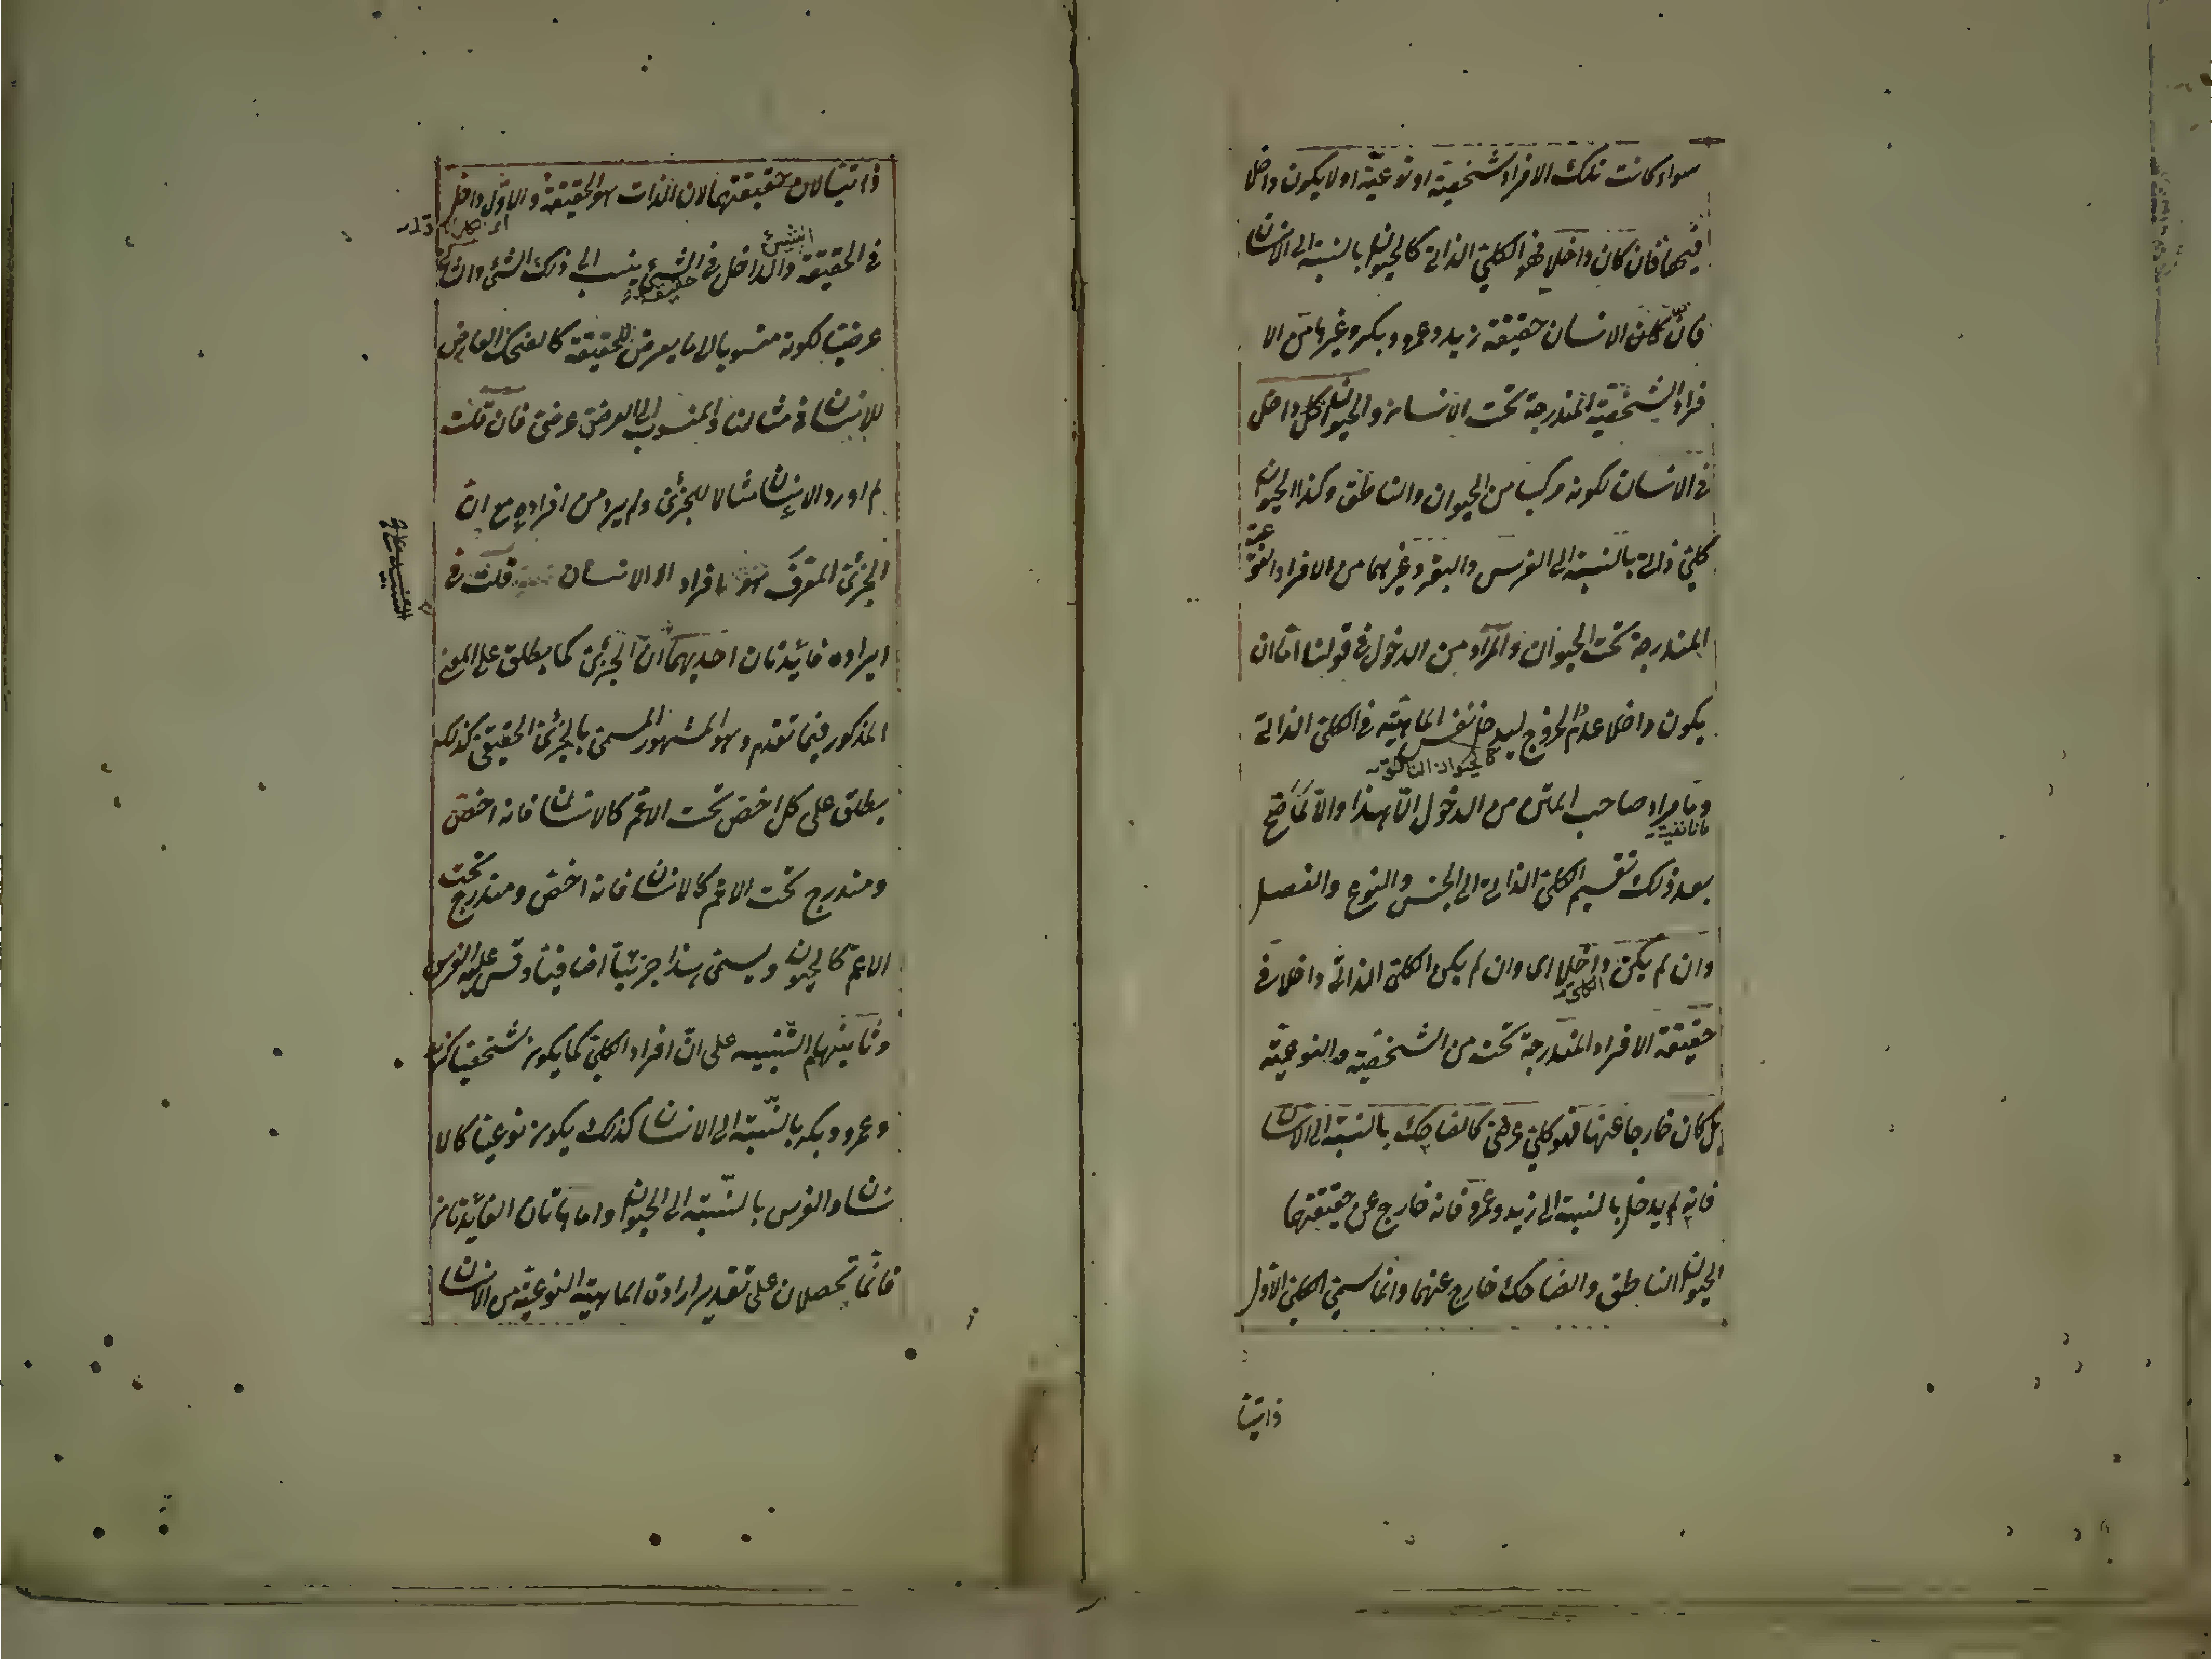 سواء كانت تلك الافراد شخصية او نوعية او لا يكون داخلا
فيها فان كان داخلا فهو الكلي الذاتي كالحيوان بالنسبة الى الانسان
فان الانسان حقيقة زيد وعمرو وبكر وغيرها من الا
فراد الشخصية المندرجة تحت الانسان والحيوان داخل
في الانسان لكونه مركبا من الحيوان والناطق وكذا الحيوان
كلي ذاتي بالنسبة الى الفرس والبقر وغيرهما من الافراد النوعية
المندرجة تحت الحيوان والمراد من الدخول في قولنا اما ان
يكون داخلا عدم الخروج ليدخل نفس الماهية في الكلي الذاتي
كالحيوان الناطق
وما مراد صاحب المتن من الدخول الا هذا والا لما صح
ما نافية
بعد ذلك تقسيم الكلي الذاتي الى الجنس والنوع والفصل
وان لم يكن داخلا اى وان لم يكن الكلي الذاتي داخلا في
الكلي
حقيقة الافراد المندرجة تحت من الشخصية والنوعية
بل كان خارجا عنها فهو كلي عرضي كالضاحك بالنسبة الى الانسان
فانه لم يدخل بالنسبة الى زيد وعمرو فانه خارج عن حقيقتهما
الحيوان الناطق والضاحك خارج عنهما وانما سمي الكلي الاول
ذاتيا
ذاتيا لان حقيقتهما لان الذات هو الحقيقة والاول داخل
في الحقيقة والداخل في الشيئ ينسب الى ذلك الشئ
الشيئ
حقيقة
عرضيا لكونه منسوبا الى ما يعرض للحقيقة كالضحك العارض
للانسان في مثالنا والمنسوب الى العرض عرضي فان قلت
لم اورد الانسان مثالا للجزئي ولم يرد من افراده مع ان
الجزئي المعرف هو افراد الانسان قلت في
ايراده فائدتان احديهما ان الجزئي كما يطلق على المعنى
المذكور فيما تقدم وهو المشهور المسمى بالجزئي الحقيقي كذلك
يطلق على كل اخص تحت الاعم كالانسان فانه اخص
ومندرج تحت الاعم كالانسان فانه اخص ومندرج تحت
الاعم كالحيوان ويسمى هذا جزئيا اضافيا وقس عليه الفرس
وثانيتهما التنبيه على ان افراد الكلي كما يكون شخصيا كزيد
وعمرو وبكر بالنسبة الى الانسان كذلك يكون نوعيا كالا
نسان والفرس بالنسبة الى الحيوان واما هاتان الفائدتان
فانما تحصلان على تقدير ارادة الماهية النوعية من الانسان